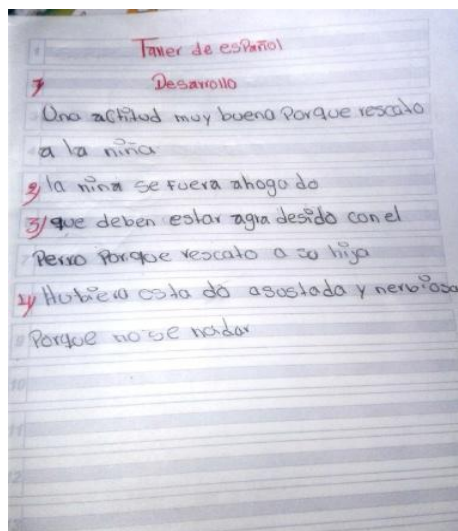 Taller de español
1 Desarrollo
Una actitud muy buena Porque rescato
a la niña
2) la niña se fuera ahoga do
3) que deben estar agra desido con el
Perro Porque rescato a su hija
4) Hubiera esta do asustada y nerbiosa
Porque no se nadar